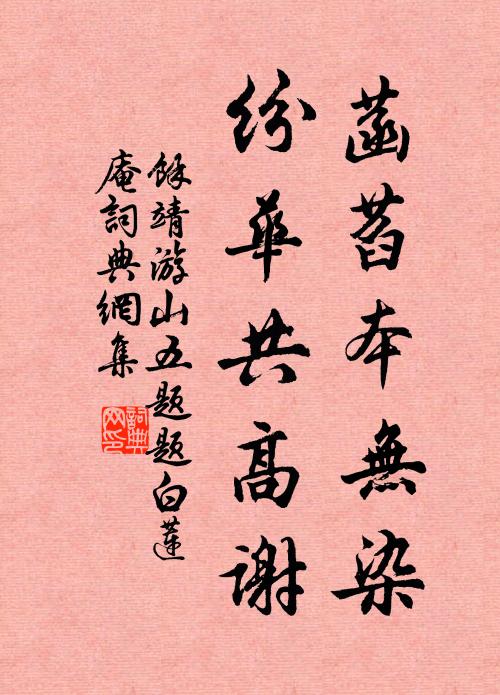 菡萏本無染
紛華共高謝
餘靖游山五題題白蓮
庵詞典網集
詞典
网印